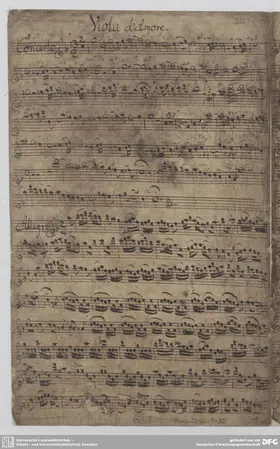 Viola d'Amore.
Concerto
Allegro
Sächsische Landesbibliothek –
Staats- und Universitätsbibliothek Dresden
gefördert von der
Deutschen Forschungsgemeinschaft
DFG